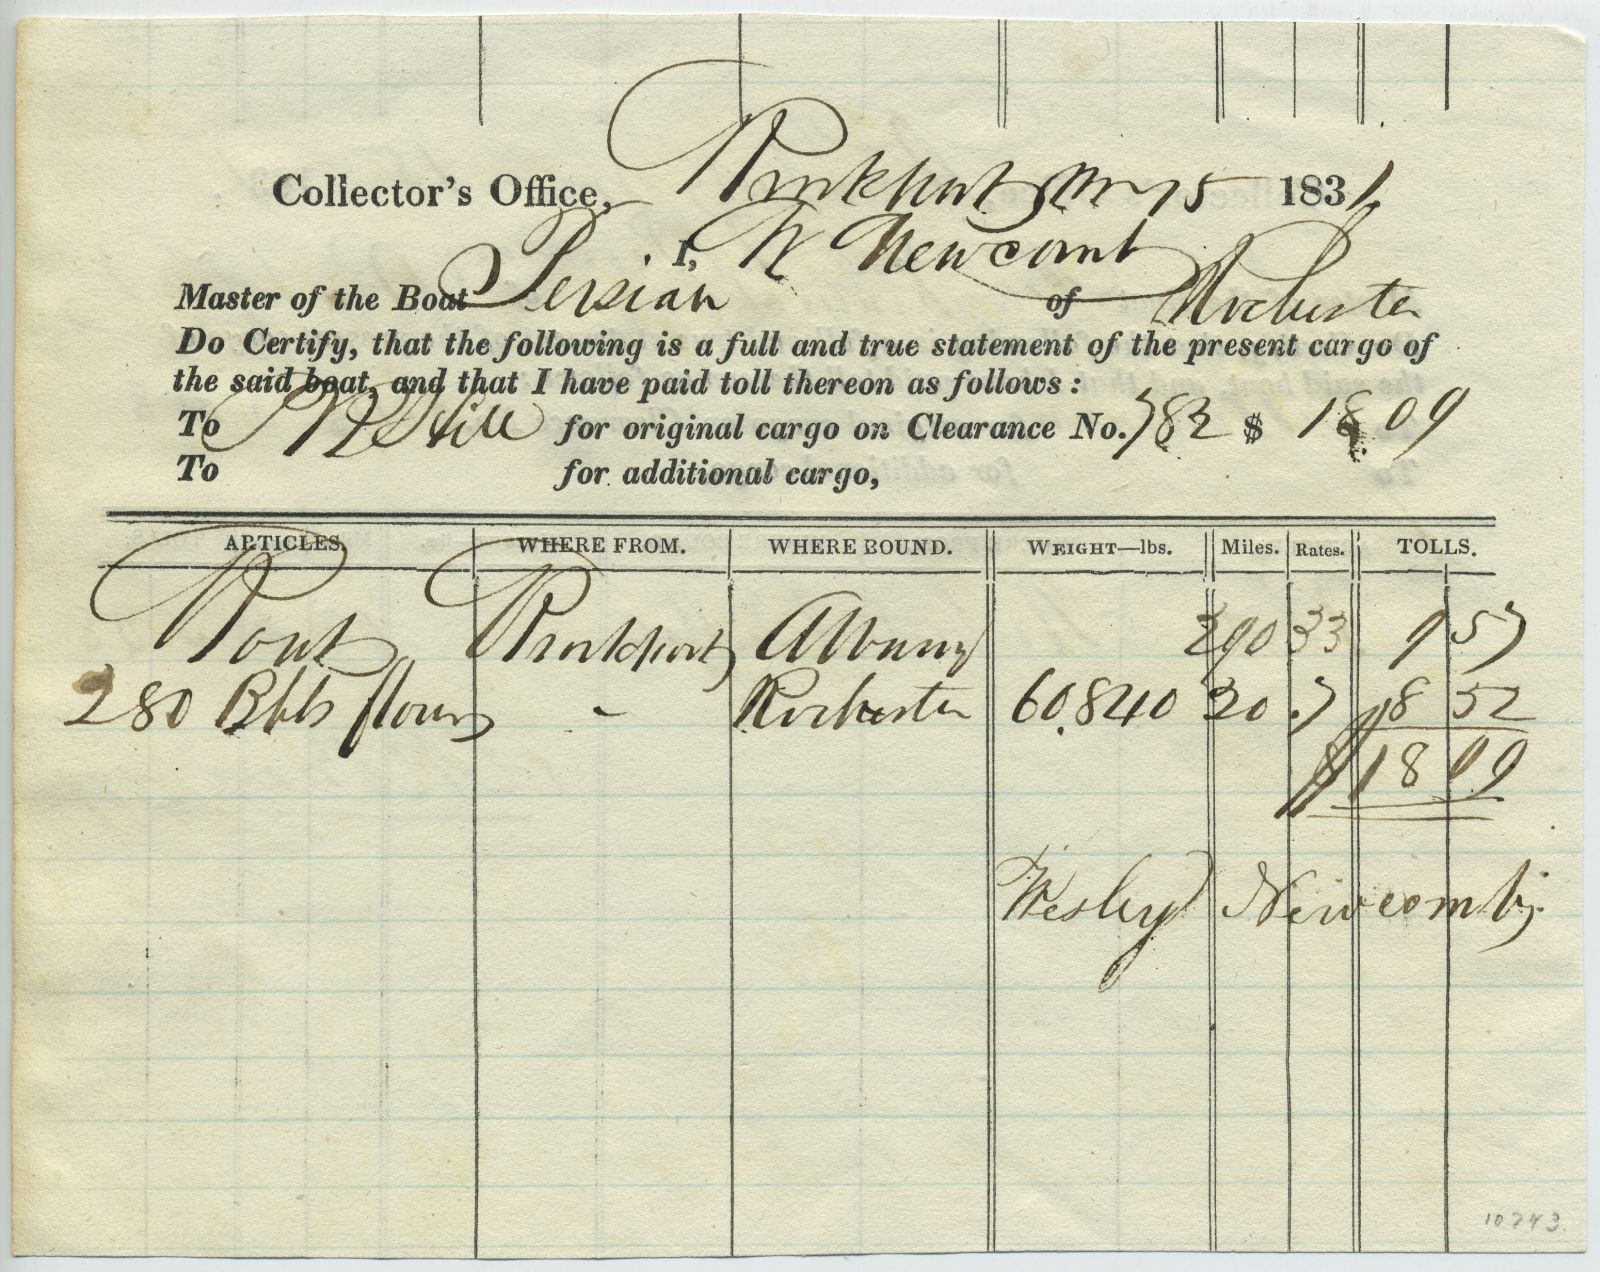 Collector's Office, Brockport May 5 1831
I, W Newcomb
Master of the Boat Persian of Rochester
Do Certify, that the following is a full and true statement of the present cargo of
the said boat, and that I have paid toll thereon as follows:
To Hill for original cargo on Clearance No. 782 $ 18 09
To for additional cargo,
ARTICLES. WHERE FROM. WHERE BOUND. WEIGHT—lbs. Miles. Rates. TOLLS.
Boat Brockport Albany 290 33 9 57
280 Bbls flour - Rochester 60.840 20 .7 8 52
$18 09
Wesley Newcomb
10743